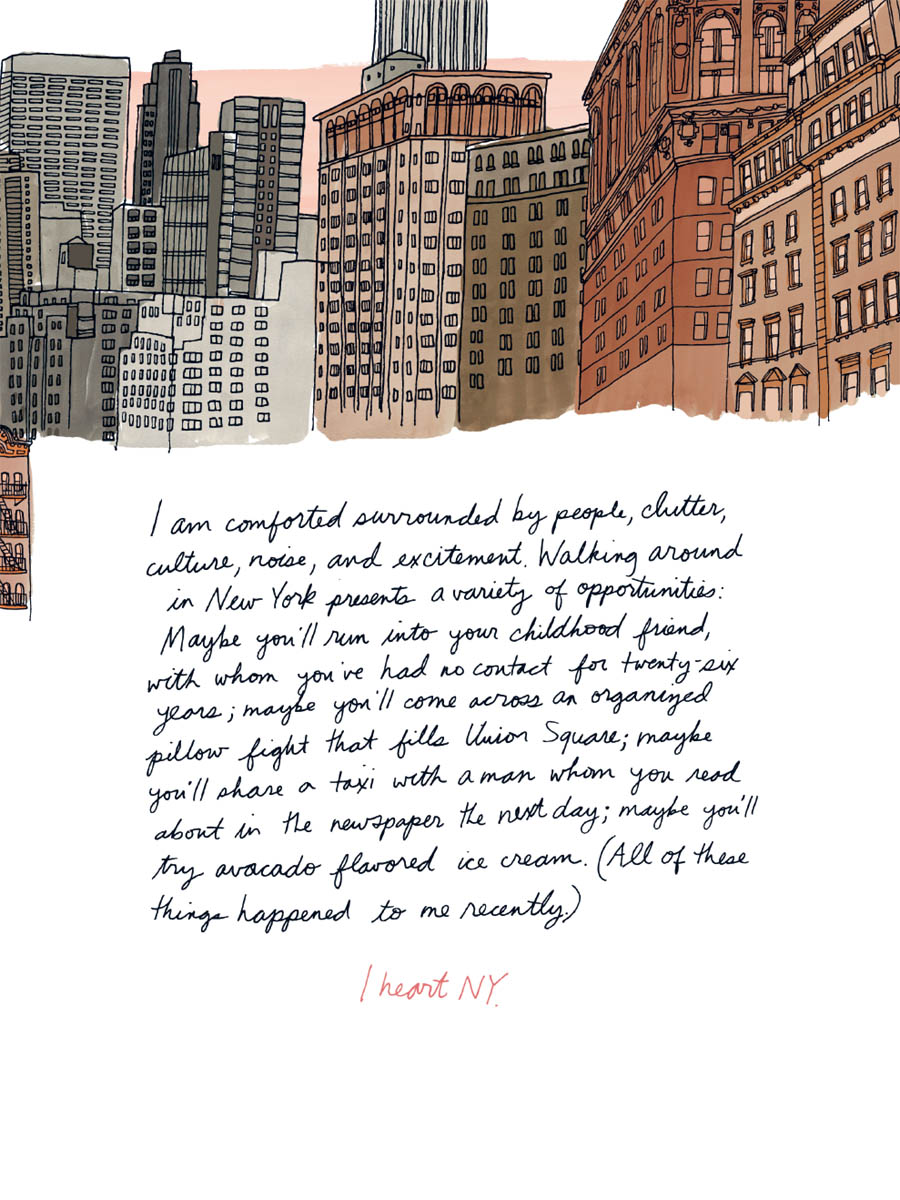 I am comforted surrounded by people, clutter,
culture, noise, and excitement. Walking around
in New York presents a variety of opportunities:
Maybe you'll run into your childhood friend,
with whom you've had no contact for twenty-six
years; maybe you'll come across an organized
pillow fight that fills Union Square; maybe
you'll share a taxi with a man whom you read
about in the newspaper the next day; maybe you'll
try avocado flavored ice cream. (All of these
things happened to me recently.)
I heart NY.